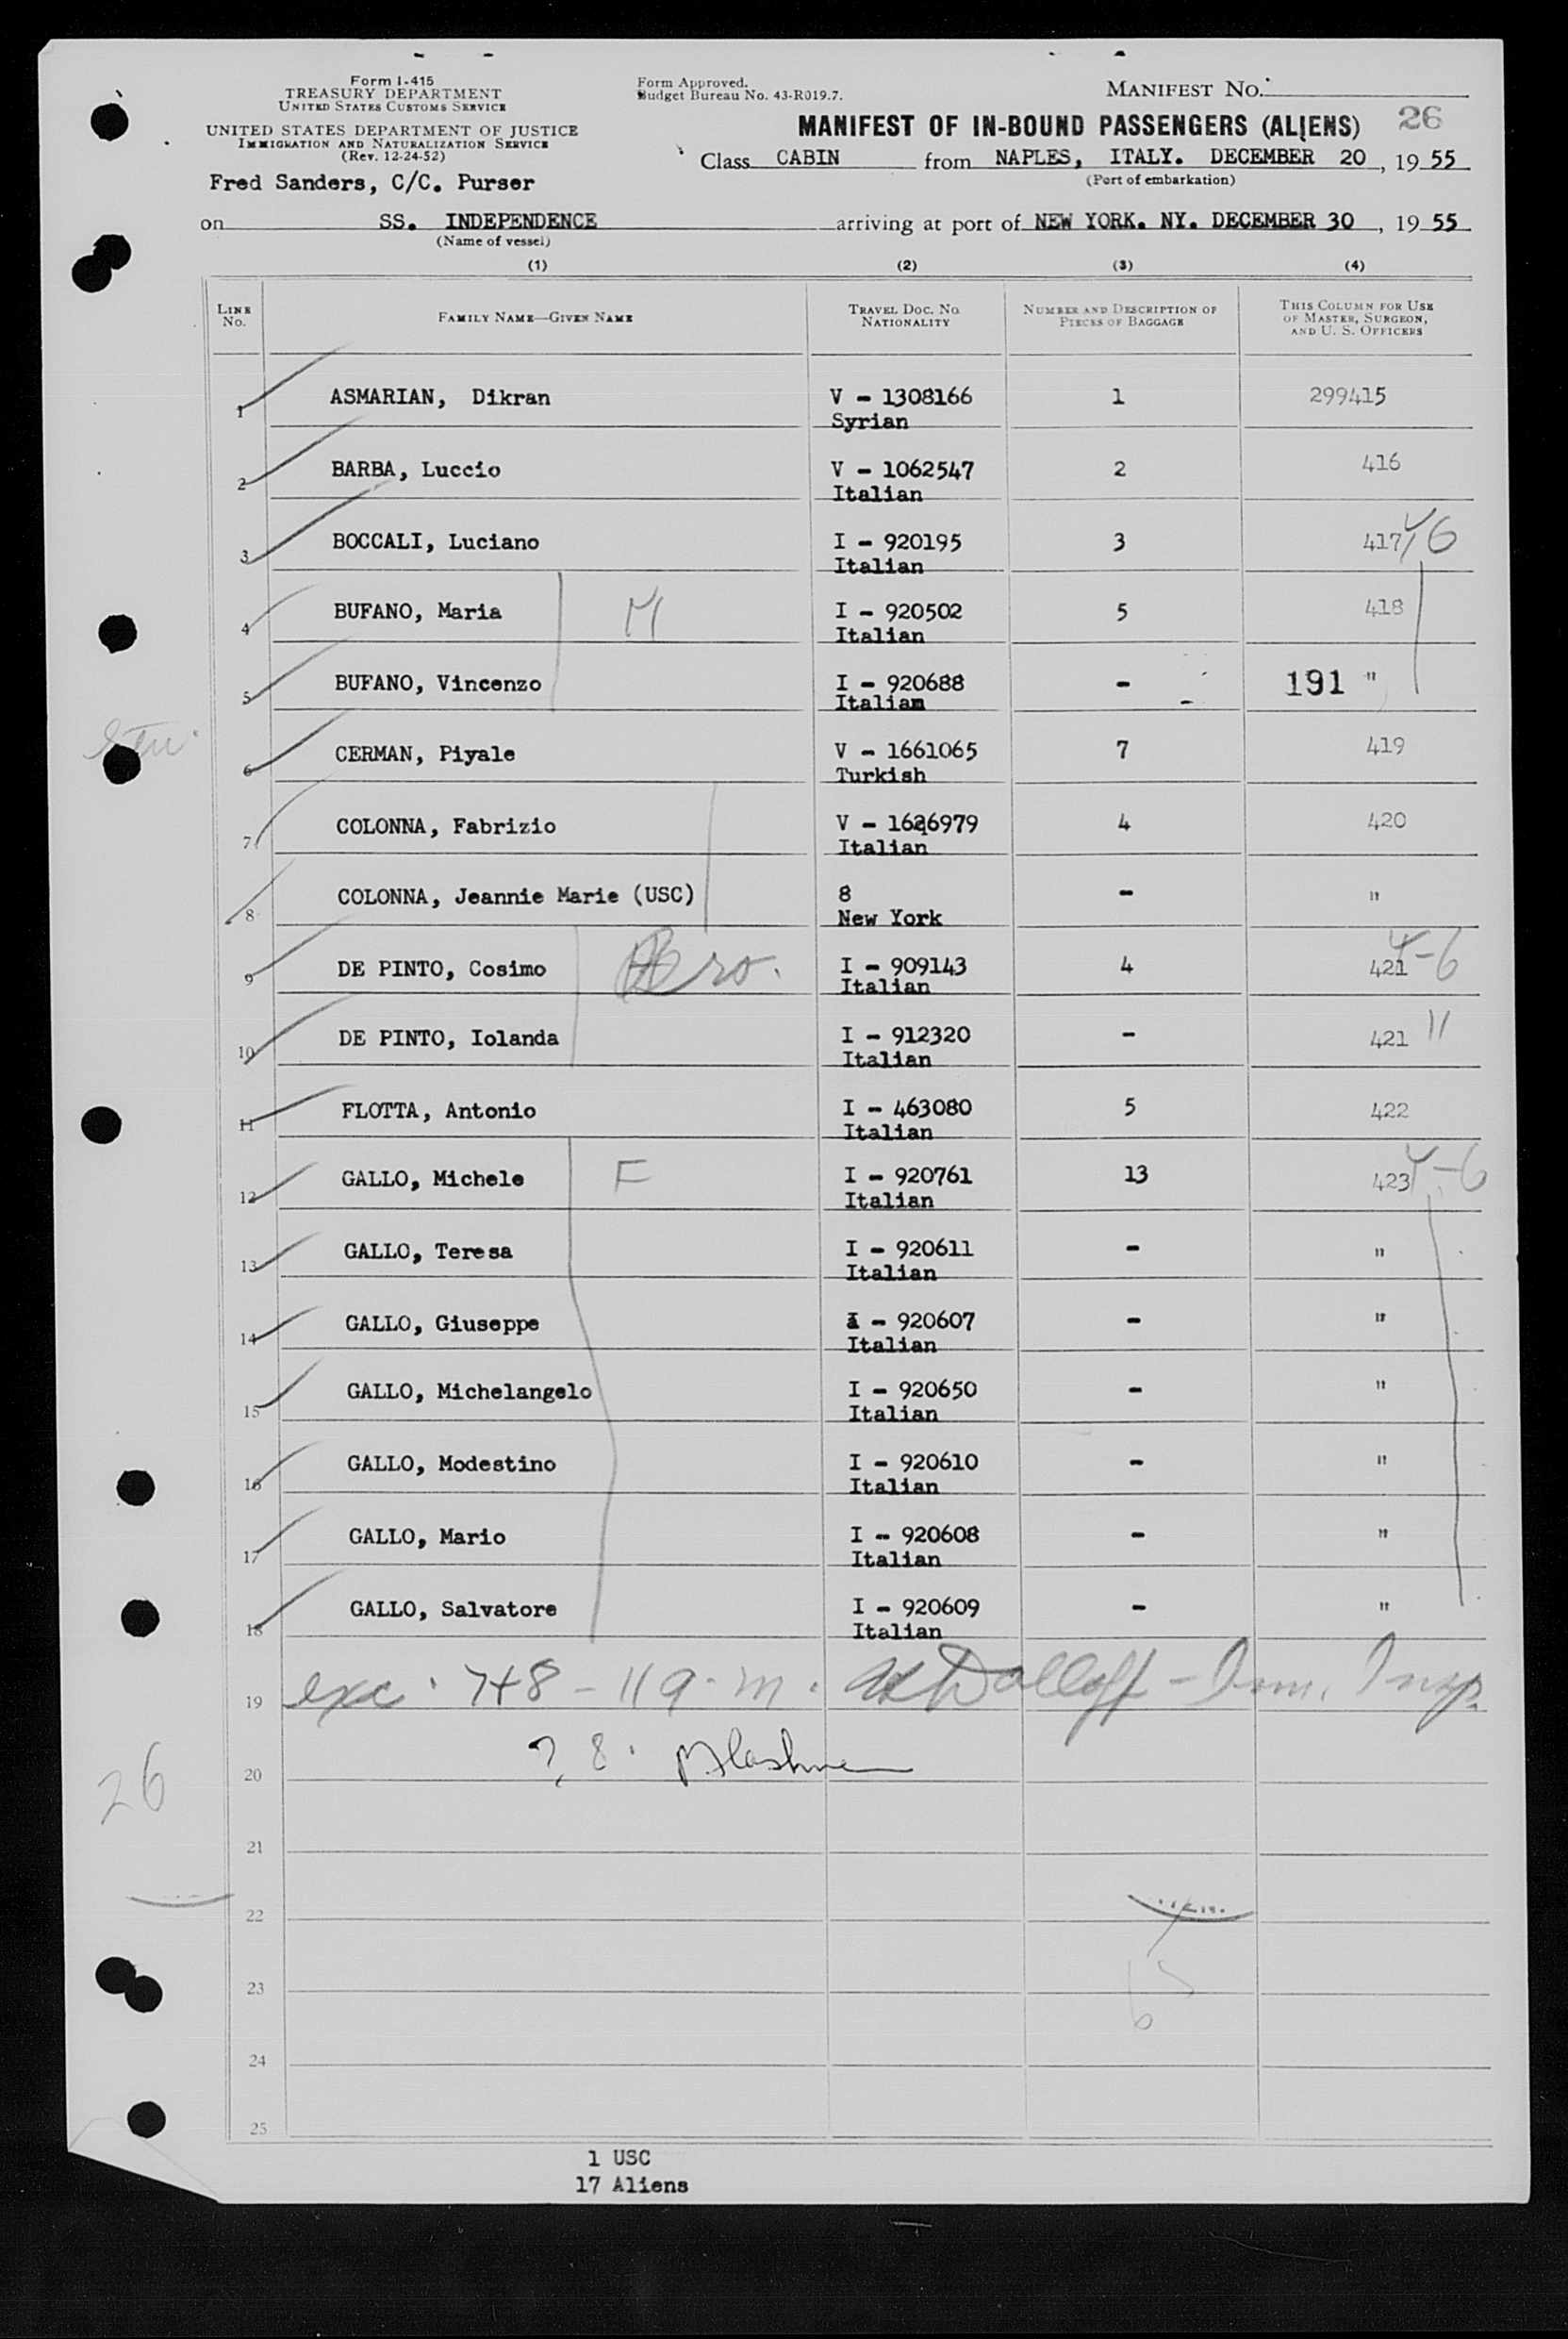 Form I-415
TREASURY DEPARTMENT
UNITED STATES CUSTOMS SERVICE
UNITED STATES DEPARTMENT OF JUSTICE
IMMIGRATION AND NATURALIZATION SERVICE
(Rev. 12-24-52)
Fred Sanders, C/C. Purser
Form Approved.
Budget Bureau No. 43-R019.7.
MANIFEST NO.
26
MANIFEST OF IN-BOUND PASSENGERS (ALIENS)
Class CABIN from NAPLES, ITALY. DECEMBER 20, 19 55
(Port of embarkation)
on SS. INDEPENDENCE arriving at port of NEW YORK. NY. DECEMBER 30, 19 55
(Name of vessel)
(1) (2) (3) (4)
LINE NO. FAMILY NAME—GIVEN NAME TRAVEL DOC. NO. NATIONALITY NUMBER AND DESCRIPTION OF PIECES OF BAGGAGE THIS COLUMN FOR USE OF MASTER, SURGEON, AND U. S. OFFICERS
1 ASMARIAN, Dikran V - 1308166 1 299415
Syrian
2 BARBA, Luccio V - 1062547 2 416
Italian
3 BOCCALI, Luciano I - 920195 3 417 6
Italian
4 BUFANO, Maria M I - 920502 5 418
Italian
5 BUFANO, Vincenzo I - 920688 - 191 "
Italian
6 CERMAN, Piyale V - 1661065 7 419
Turkish
7 COLONNA, Fabrizio V - 1626979 4 420
Italian
8 COLONNA, Jeannie Marie (USC) 8 - "
New York
9 DE PINTO, Cosimo I - 909143 4 421 4-6
Italian
10 DE PINTO, Iolanda I - 912320 - 421 "
Italian
11 FLOTTA, Antonio I - 463080 5 422
Italian
12 GALLO, Michele F I - 920761 13 423 4-6
Italian
13 GALLO, Teresa I - 920611 - "
Italian
14 GALLO, Giuseppe I - 920607 - "
Italian
15 GALLO, Michelangelo I - 920650 - "
Italian
16 GALLO, Modestino I - 920610 - "
Italian
17 GALLO, Mario I - 920608 - "
Italian
18 GALLO, Salvatore I - 920609 - "
Italian
19 exc. 7+8 - 11 a.m. - Imm. Insp.
20 7, 8.
26
21
22
23
24
25
1 USC
17 Aliens